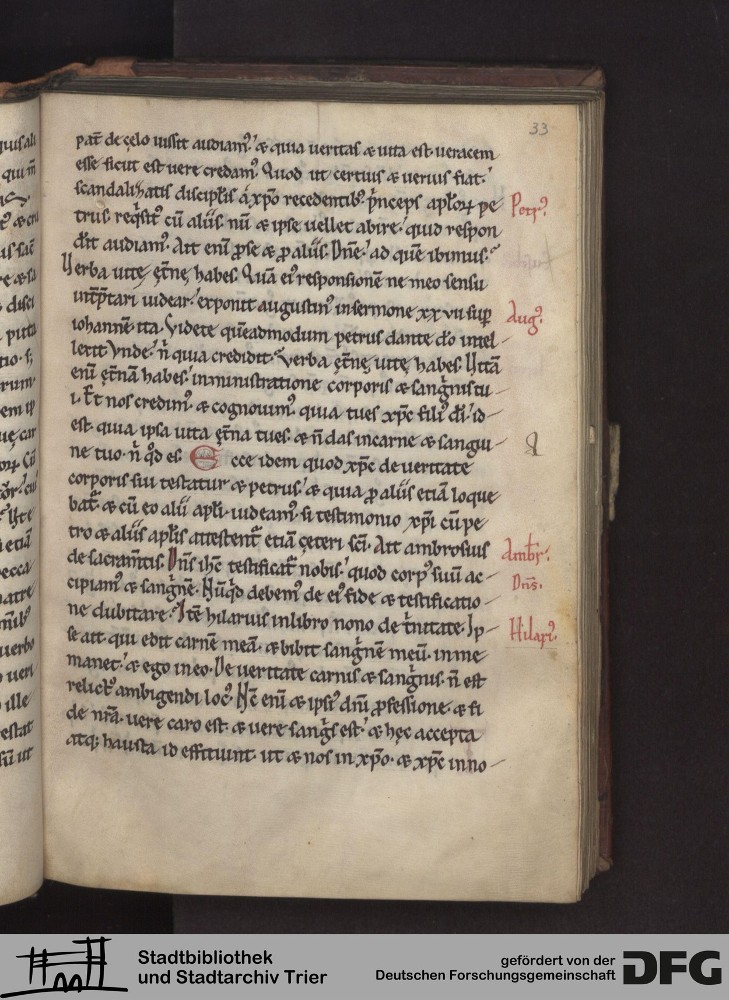 33
pat̄ de çelo iussit audiam᷒. & quia ueritas & uita est. ueracem
esse sicut est uere credam᷒. Quod ut certius & uerius fiat.
scandalizatis discipl̄is a xp̄o recedentib᷒. p̄nceps apl̄oꝝ pe
trus. req̇sit᷒ cū aliis. nū & ipse uellet abire. quid respon
dit audiam᷒. Ait enī ꝓ se & ꝓ aliis. Dn̄e. ad quē ibimus.
Verba uitę ęt̄nę habes. Quā ei᷒ responsionē ne meo sensu
int̄ꝑtari uidear. exponit augustin᷒ in sermone xxvii sup̄
iohannē ita. Videte quēadmodum petrus dante d̄o intel
lexit. Vnde. n̄ quia credidit. Verba ęt̄nę uitę habes. Vitā
enī ęt̄nā habes. in ministratione corporis & sanġnis tu
i. Et nos credim᷒. & cognouim᷒. quia tu es xp̄c fili᷒ dī. id
est. quia ipsa uita ęt̄na tu es. & n̄ das in carne & sangui
ne tuo. n̄ q̇d es. Ecce idem quod xp̄c de ueritate
corporis sui testatur & petrus. & quia ꝓ aliis etiā loque
bat᷒. & cū eo alii apl̄i. uideam᷒. si testimonio xp̄i cū pe
tro & aliis apl̄is attestent᷒ etiā çeteri sc̄i. Ait ambrosius
de sacram̄tis. Dn̄s ih̄c testificat᷒ nobis. quod corp᷒ suū ac
cipiam᷒ & sanġnē. Nūq̇d debem᷒ de ei᷒ fide & testificatio
ne dubitare. Itē hilarius in libro nono de ṫnitate. Ip
se ait. qui edit carnē meā. & bibit sanġnē meū. in me
manet. & ego in eo. De ueritate carnis & sanġnis. n̄ est
relict᷒ ambigendi loc᷒. Nc̄ enī & ipsi᷒ dn̄i ꝓfessione. & fi
de nr̄a. uere caro est. & uere sanġs est. & hęc accepta
atq; hausta id efficiunt. ut & nos in xp̄o. & xp̄c in no
Petr᷒.
Aug᷒.
Ambr᷒.
Dn̄s.
Hilari᷒.
Stadtbibliothek
und Stadtarchiv Trier
gefördert von der
Deutschen Forschungsgemeinschaft
DFG